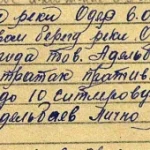 реки Одер 6.0
берег реки О
тов. Адельб
контратак против
до 10 гитлеровц
дельбаев лично